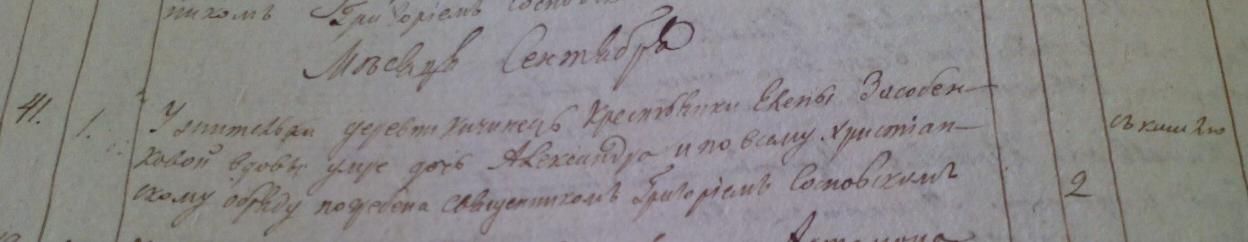 никомъ Григоріемъ Сосновс
Мѣсяцъ Сентябрь
41. 1. Жительки деревни Кичинецъ Крестьянки Елены Засобен-
ковой вдовы умре дочь Александра и по всему Христіан-
скому обряду погребена священникомъ Григоріемъ Сосновскимъ
2
съ кашлю